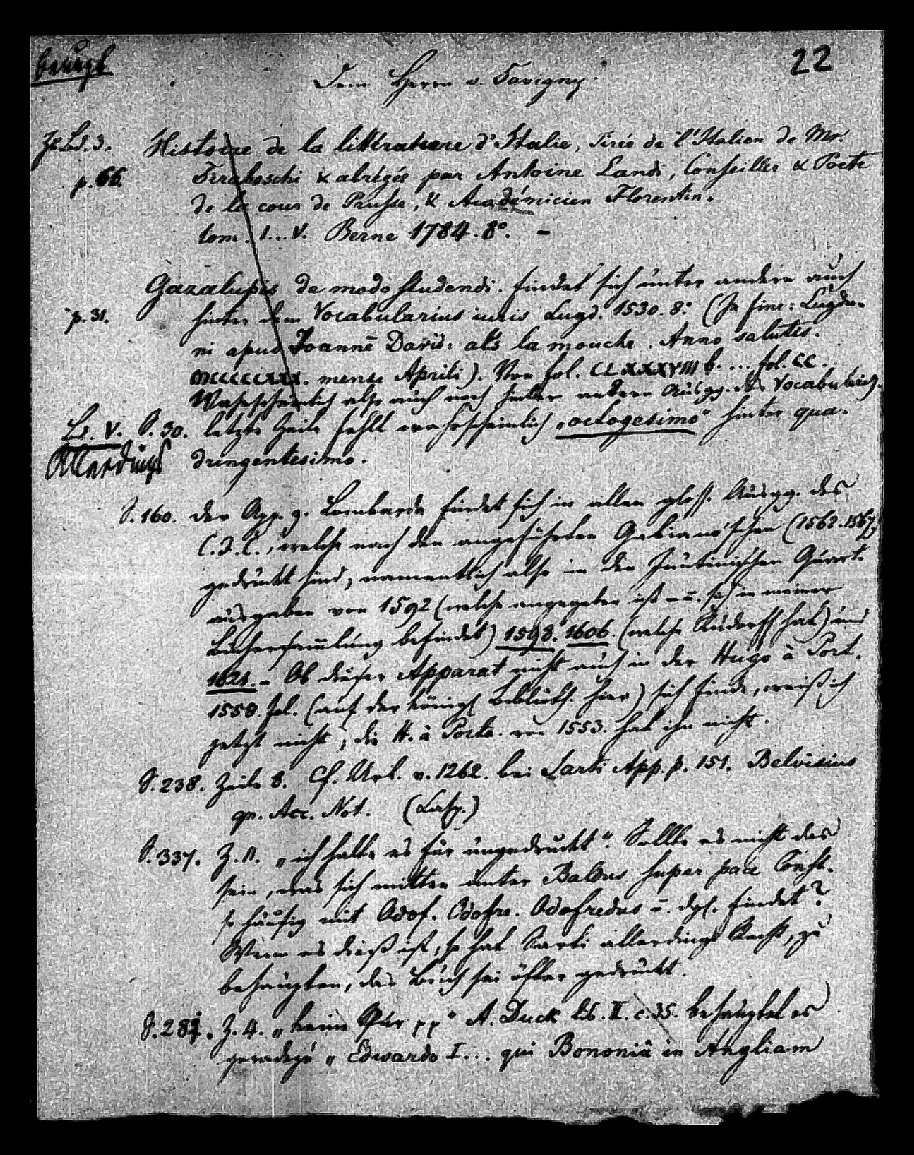 benuzt
22
Dem Herrn v. Savigny.
Zu Bd. 3.
p. 66. Histoire de la littérature d'Italie, tirée de l'Italien de Mr.
Tiraboschi & abrégée par Antoine Landi, Conseiller & Poete
de la cour de Prusse, & Académicien Florentin.
tom. I...V. Berne 1784. 8°. –
p. 31. Gazalupis de modo studendi. findet sich unter andern auch
hinter dem Vocabularius iuris Lugd. 1530. 8° (In fine: Lugdu-
ni apud Joannē David: als la mouche. Anno salutis.
MCCCCCXXX. mense Aprili). Von fol. CCLXXXVIII b. ... fol. CC..
Wahrscheinlich also auch noch hinter andern Ausgg. des Vocabularius.
Bd. V. S. 30. letzte Zeile fehlt wahrscheinlich „octogesimo“ hinter qua-
Allerdings dringentesimo.
S. 160. der App. z. Lombarda findet sich in allen gloss. Ausgg. des
C. J. C., welche nach den angeführten Gabiano'schen (1562. 1567)
gedruckt sind, namentlich also in den Juntinischen Quart-
ausgaben von 1592 (welche angegeben ist u. sich in meiner
Büchersammlung befindet) 1598. 1606. (welche Rudorff hat) und
1621. – Ob dieser Apparat nicht auch in der Hugo à Port.
1558. fol. (auf der königl Biblioth. hier) sich finde, weiß ich
jetzt nicht; die H. à Porta. von 1553. hat ihn nicht.
S. 238. Zeile 8. Cf. Urk. v. 1262. bei Sarti App. p. 151. Belvisius
qu. Acc. Not. (Lasp.)
S. 337. Z. „ich halte es für ungedruckt“. Sollte es nicht das
sein, was sich mitten unter Baldus super pace Const.
so häufig mit Odof. Odofre. Odofredus u. dgl. findet?
Wenn es dieß ist, so hat Sarti allerdings Recht, zu
behaupten, das Buch sei öfter gedruckt.
S. 281. Z. 4. „keine Spur pp“ A. Duck lib. II. c. 35. behauptet es
geradezu „Edwardo I... qui Bononiâ in Angliam